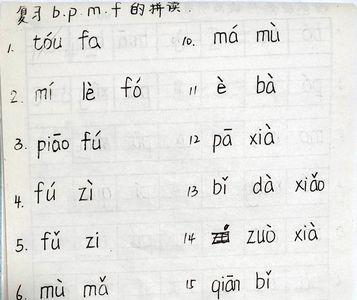 复习 b.p.m.f 的拼读.
1. tóu fa 10. má mù
2. mí lè fó 11 è bà
3. piāo fú 12 pā xià
4. fú zì 13 bǐ dà xiǎo
5. fǔ zi 14 zuò xià
6. mù mǎ 15 qiān bǐ